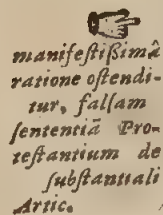 manifestißimâ
ratione ostendi-
tur, falsam
sententiā Pro-
testantium de
substantiali
Artic.